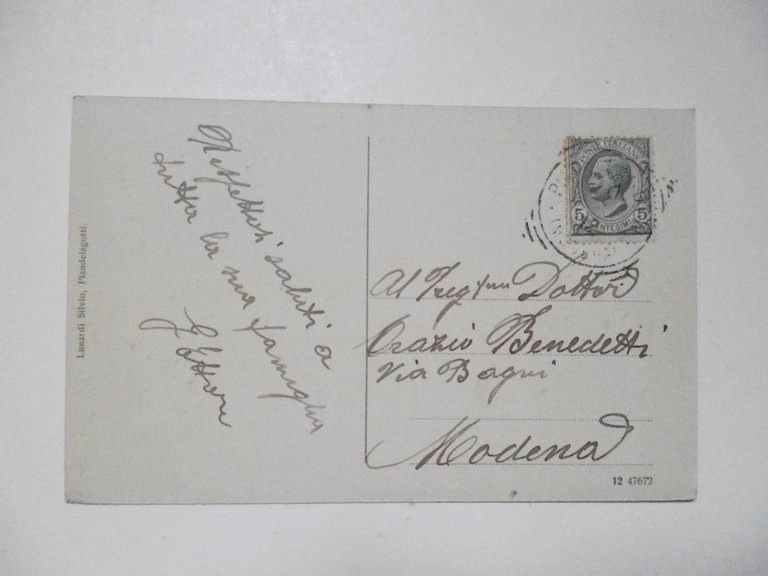 Lunardi Silvio, Piandelagotti.
Rispettosi saluti a
tutta la sua famiglia
G Ettore
POSTE ITALIANE
5 5
CENTESIMI
Al Preg
Dottor
Orazio Benedetti
Via Bagni
Modena
12 47672